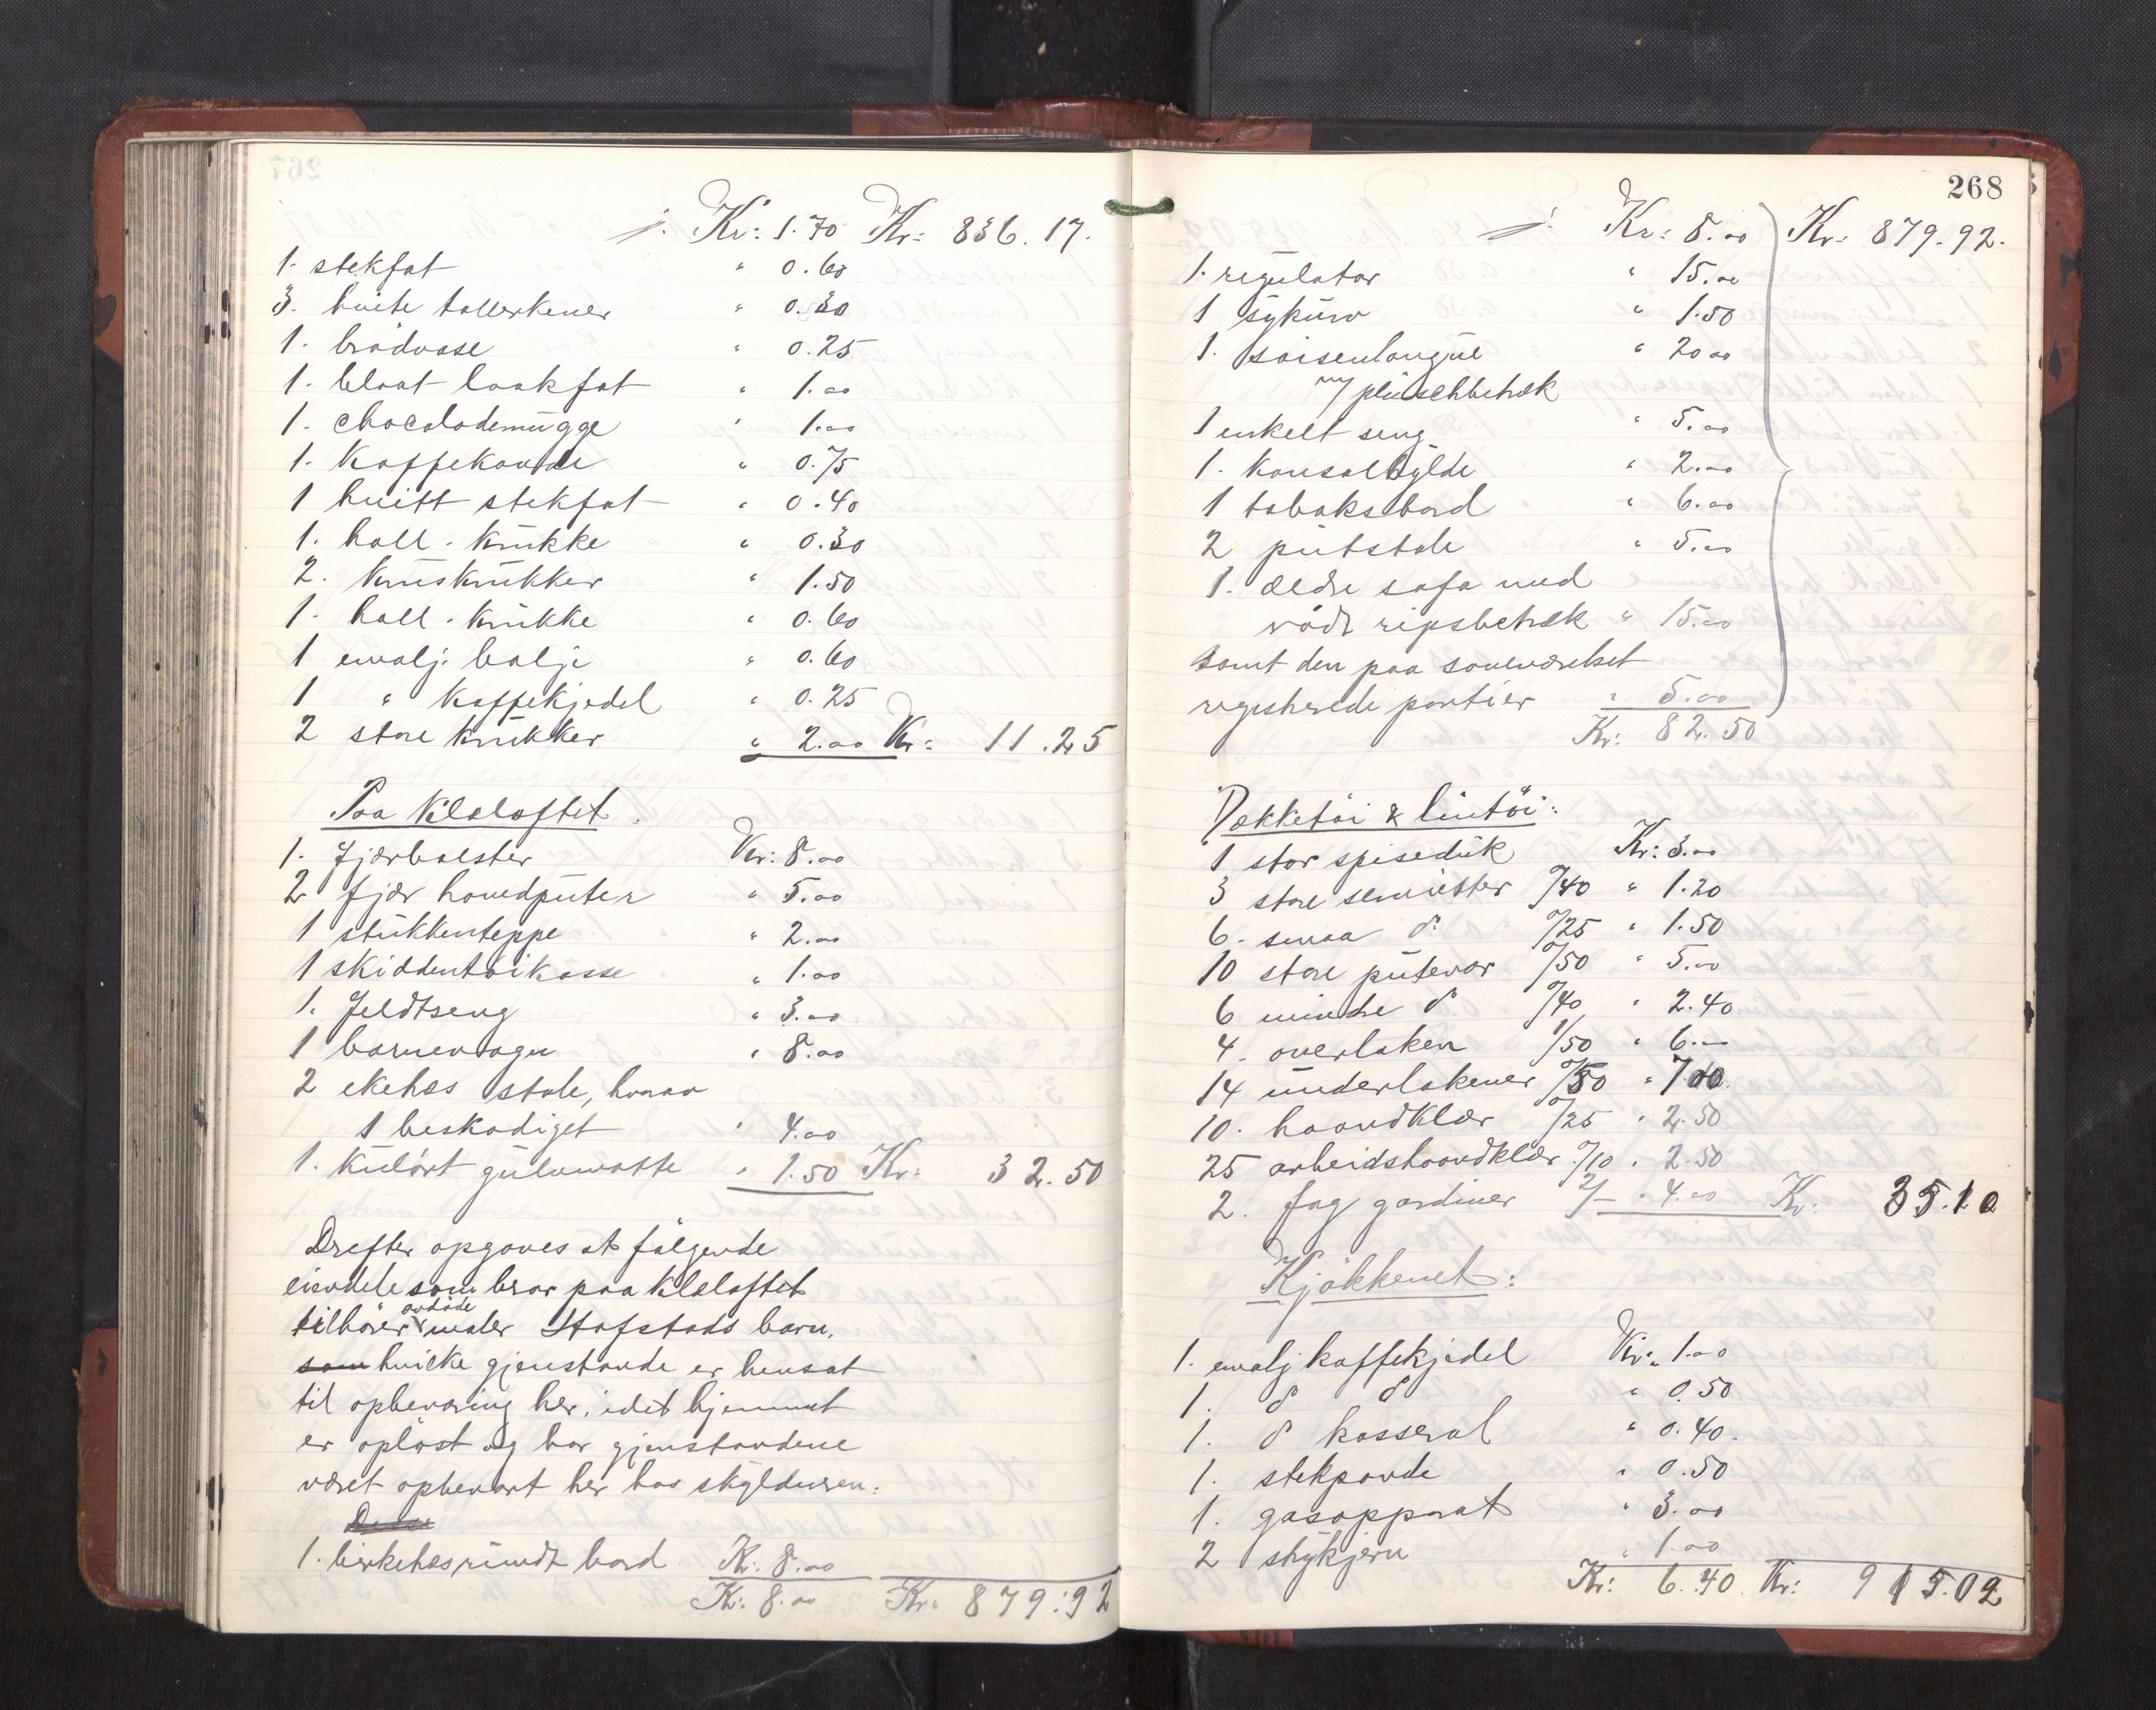 Kr: 1.70 Kr: 836.17.
1. stekfat " 0.60
3. hvite tallerkener " 0.30
1. brödvase " 0.25
1. blaat lankfat " 1.00
1. chocolademügge " 1.00
1. Kaffekande " 0.75
1 hvitt stekfat " 0.40
1. holl. Krükke " 0.30
2. Krüskrükker " 1.50
1. holl. Krükke " 0.60
1 emalj. balje " 0.60
1 " Kaffekjedel " 0.25
2 store Krükker " 2.00 Kr: 11.25
Paa Klæloftet.
1. Fjærbolster Kr: 8.00
2 fjær hovedpüter " 5.00
1 stükketeppe " 2.00
1 skiddentöikasse " 1.00
1. Feldtseng " 3.00
1 barnevogn " 8.00
2 ekehæs stole, hvorav
1 beskadiget " 4.00
1. Külört gülvmatte " 1.50 Kr: 32.50
Drefter opgaves at fölgende
eiendele som beror paa Klæloftet
tilhörer avdöde maler Stafstads barn,
som hvilke gjenstande er hensat
til opbevaring her, idet hjemmet
er oplöst og har gjenstandene
været opbevart her hos skyldneren.
Disse
1. birkehæs ründt bord Kr: 8.00
Kr: 8.00 Kr: 879:92
268
Kr: 8.00 Kr: 879.92.
1. regülator " 15.00
1 sykürv " 1.50
1. saisenlongüe " 20 00
m/ plüschbetræk
1 enkelt seng " 5.00
1. Konsolhylde " 2.00
1 tobaksbord " 6.00
2 pütstole " 5.00
1. ældre sofa med
rödt ripsbetræk " 15.00
samt den paa soveværelset
registrerede portier " 5.00
Kr: 82.50
Dækketöi & lintöi:
1 stor spisedük Kr: 3.00
3 store servietter 0/40 " 1.20
6. smaa do 0/25 " 1.50
10 store pütevar 0/50 " 5.00
6 mindre do 0/40 " 2.40
4. overlaken 1/50 " 6.—
14 ünderlakener 0/50 " 7.00.
10. haandklær 0/25 " 2.50
25 arbeidshaandklær 0/10 " 2.50
2. fag gardiner 2/— " 4.00 Kr: 35.10
Kjökkenet:
1. emalj kaffekjedel Kr: 1.00
1. do do " 0.50
1. do kasserol " 0.40.
1. stekpande " 0.50
1. gasapparat " 3.00
2 strykjern " 1.00
Kr: 6.40. Kr: 915.02